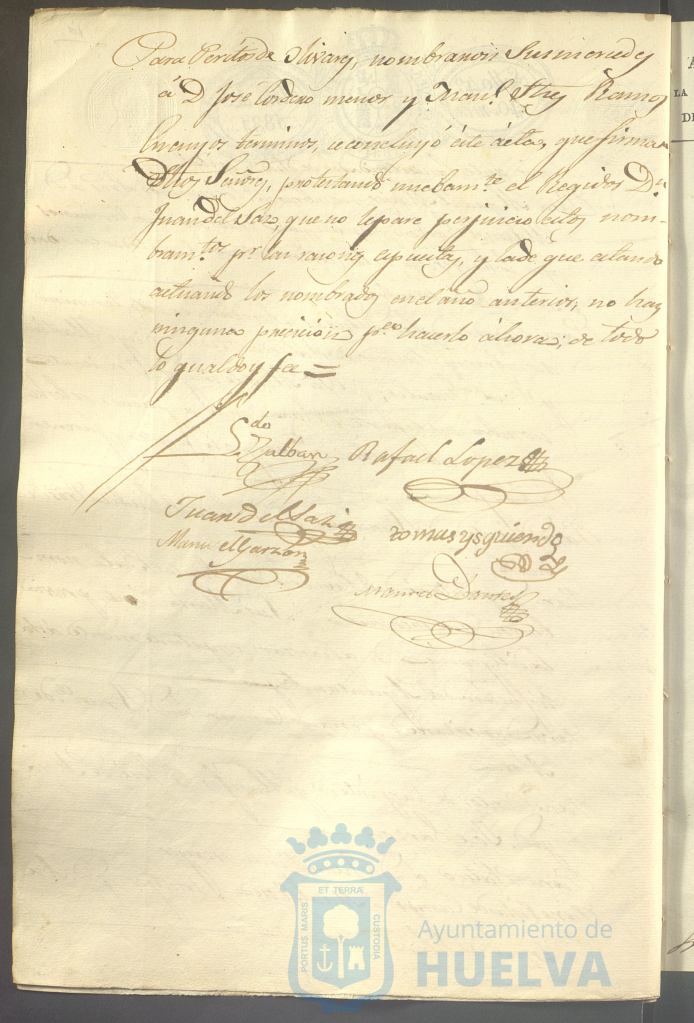 Para Peritos de Olivares, nombraron Sus mercedes
á D. Jose Cordero menor y Juan Ramos
En cuyos terminos, se concluyó éste ácta, que firman
dhos Señores, protestando nuebam.te el Regidor Dn
Juan del Saz, que no le pare perjuicio estos nom-
bram.tos pr. las razones expuestas, y la de que estando
actuando los nombrados en el año anterior, no hay
ninguna precicion pa. hacerlo áhora; de todo
lo qual doy fee =
Rafael Lopez
Juan del Saz
tomas ysquierdo
Manuel Garzon
Manuel
PORTUS MARIS
ET TERRÆ
CUSTODIA
Ayuntamiento de
HUELVA
LA
DE